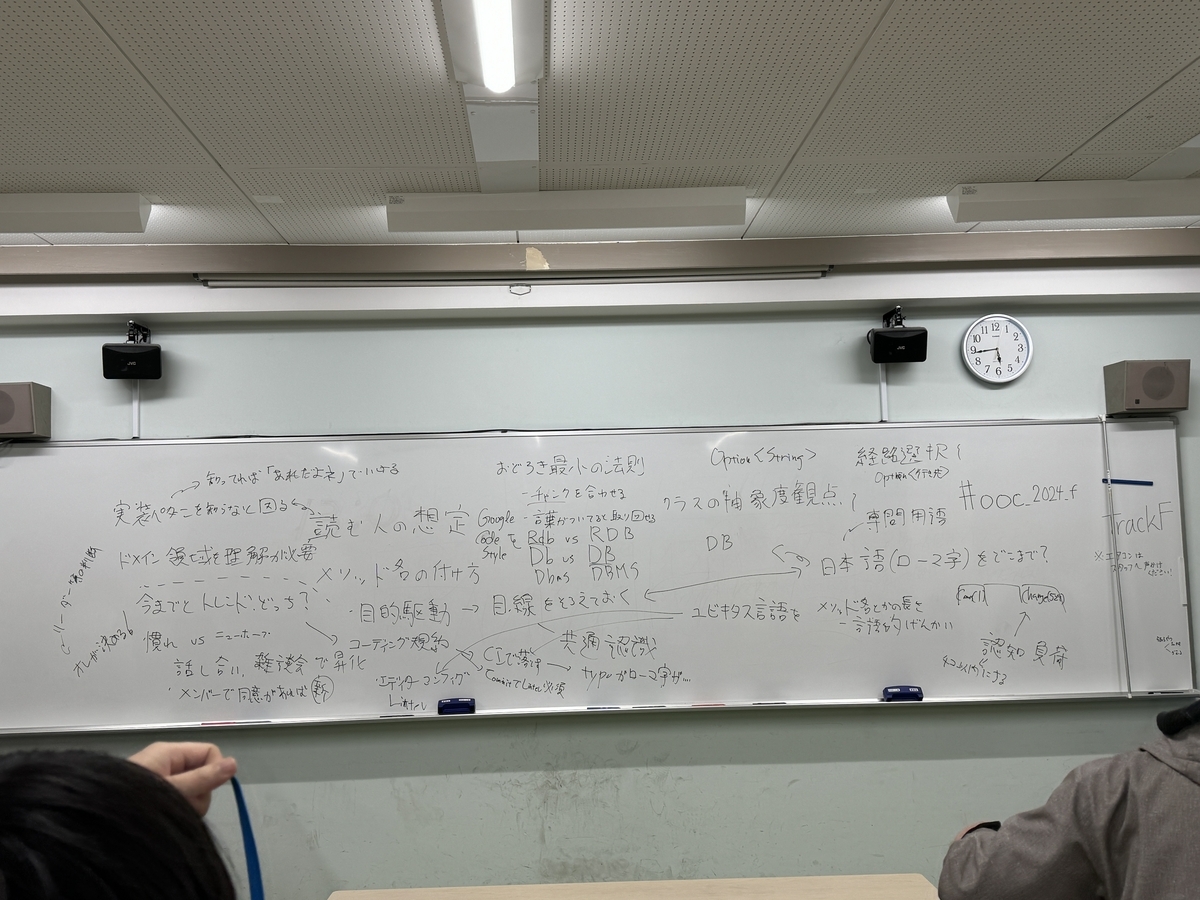 知ってれば「あれだよネ」でいける
実装パターンを知らないと困る
読む人の想定
ドメイン領域を理解が必要
メソッド名の付け方
今までとトレンドどっち?
目的駆動 → 目線をそろえておく
慣れ vs
コーディング規約
共通認識
話し合い、雑談会で昇化
CIで落とす
typoがローマ字が...
・メンバーで同意があれば新
・エディターコンフィグ
Linter
おどろき最小の法則
- チャンクを合わせる
- 言葉がついてると取り回せる
Google
Code
Style
Rdb vs RDB
Db vs DB
Dbms DBMS
Option<String>
経路選択
クラスの抽象度観点
DB
専門用語
日本語(ローマ字)をどこまで?
ユビキタス言語を
メソッド名とかの長さ
認知負荷
#ooc_2024_f
TrackF
※エアコンは
スタッフへ声かけ
ください!
JVC
JVC
12
1
2
3
4
5
6
7
8
9
10
11